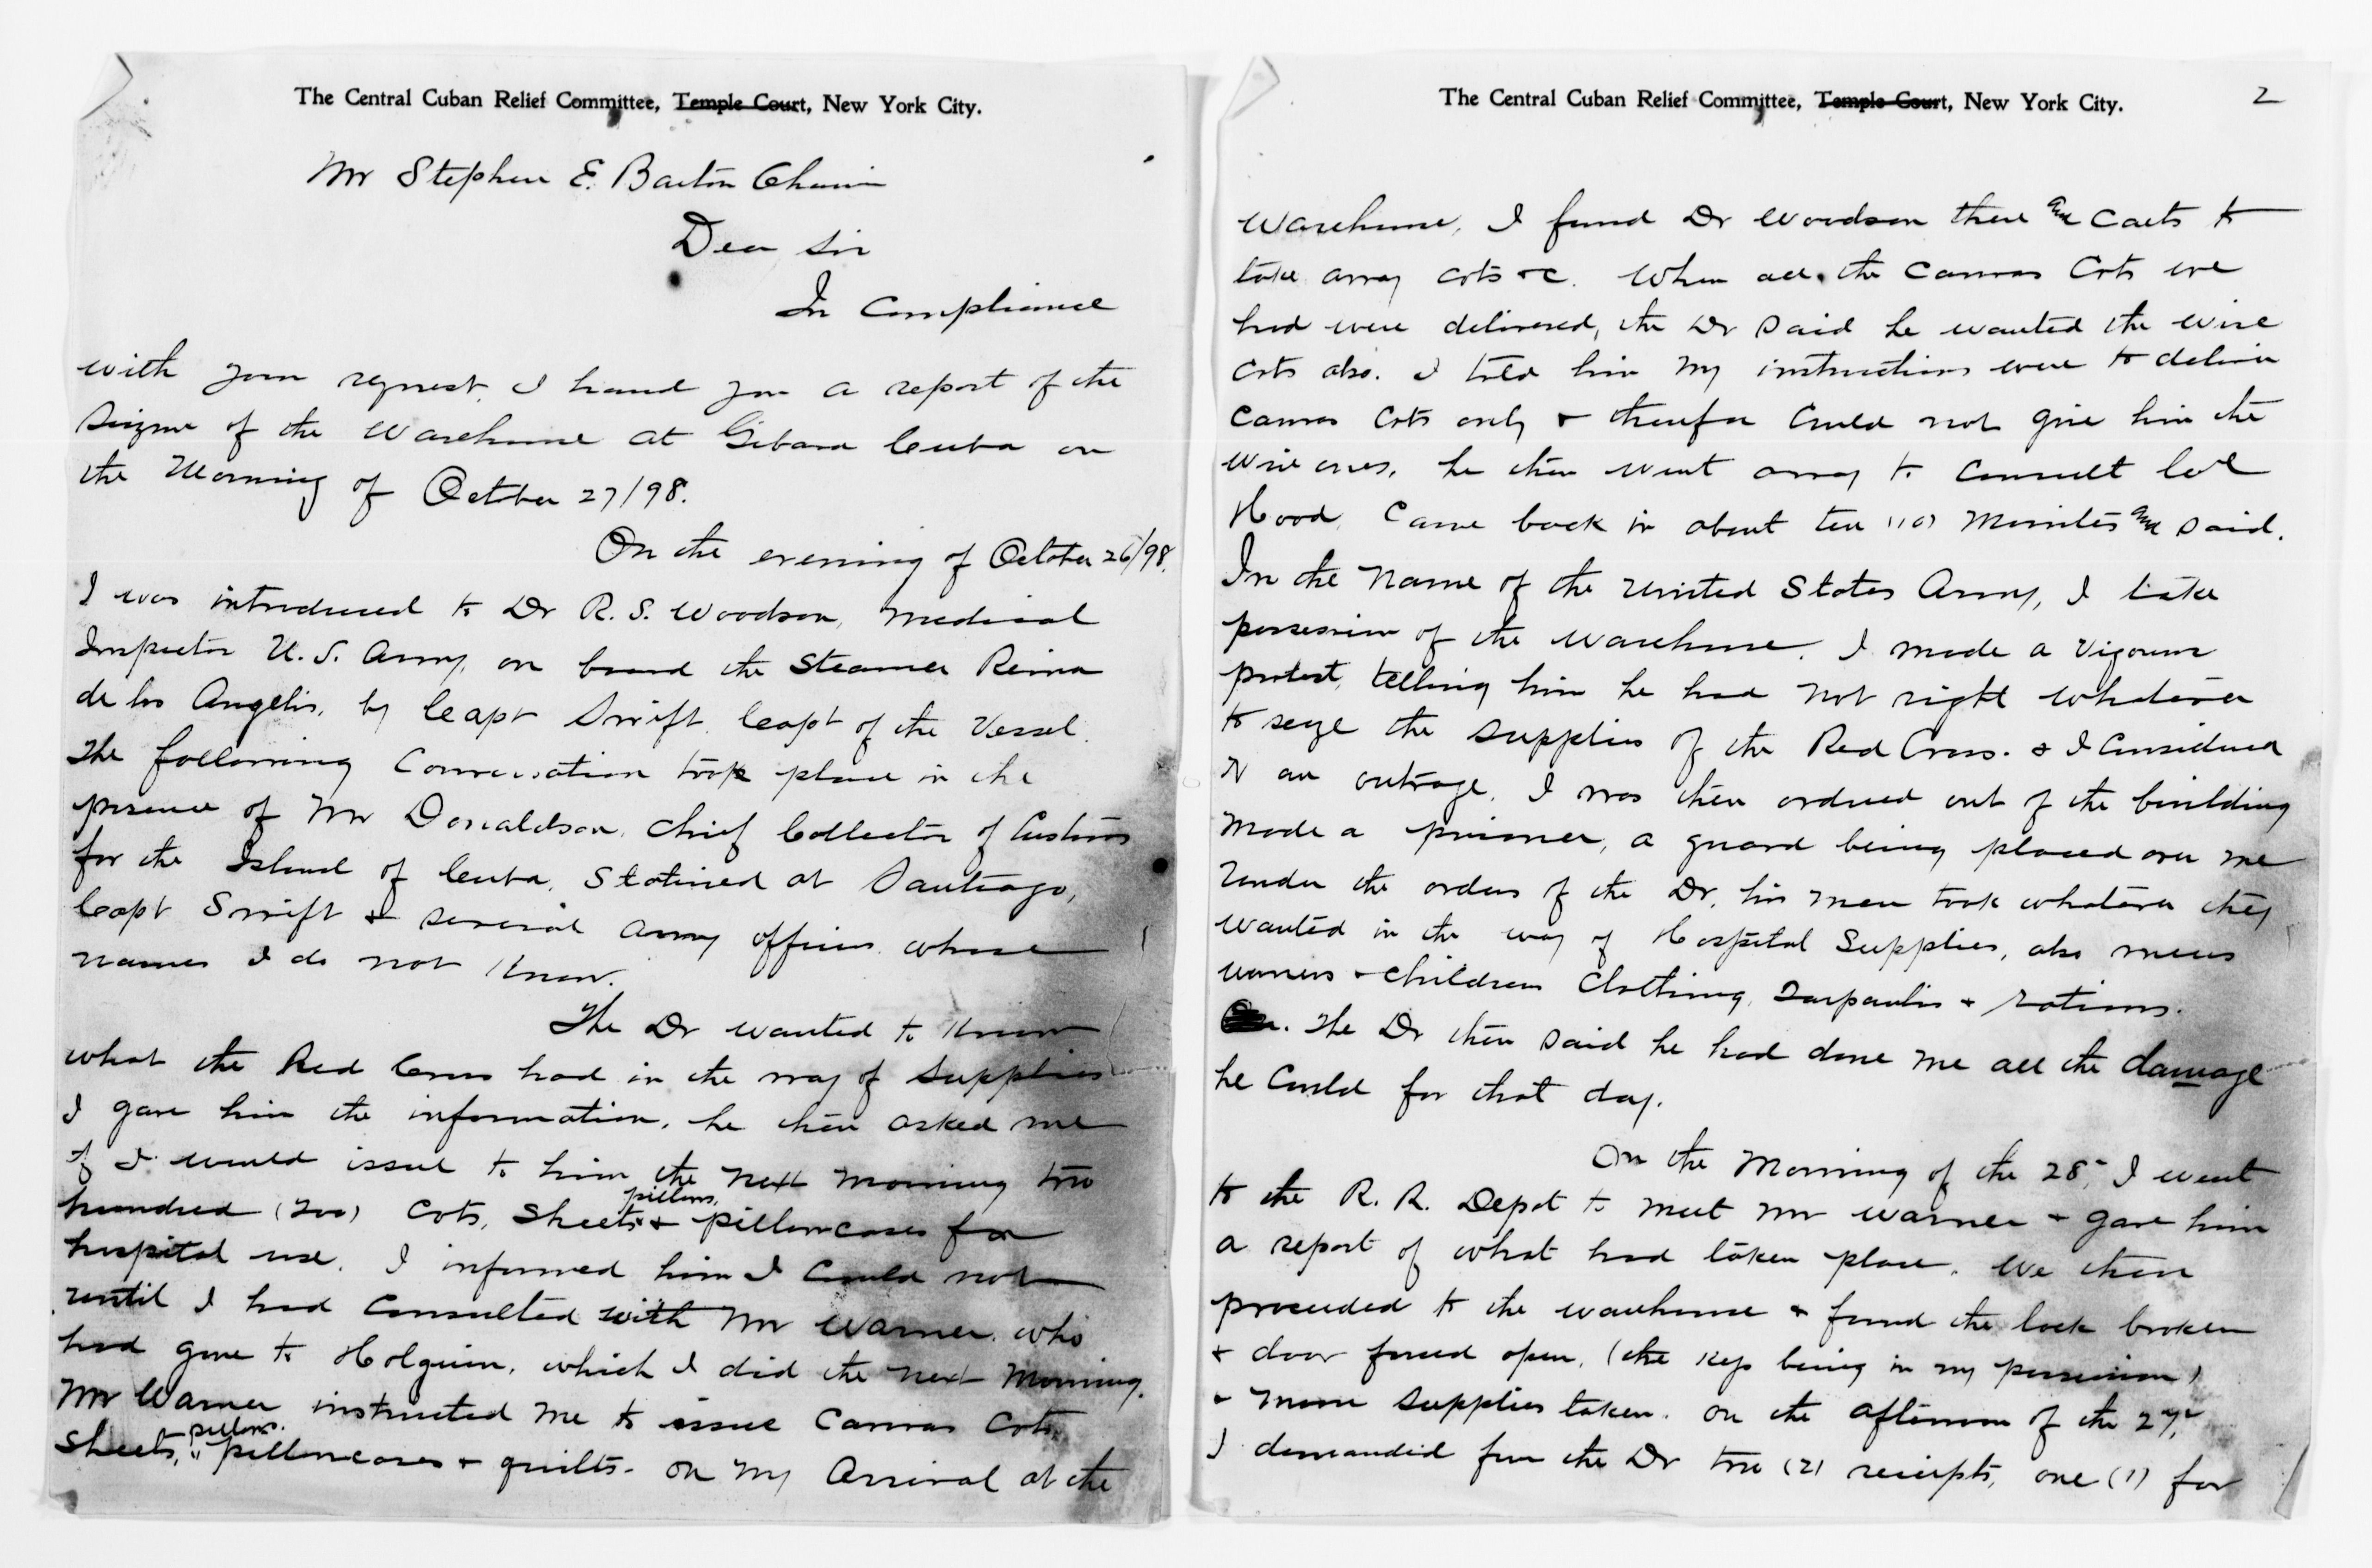 The Central Cuban Relief Committee, Temple Court, New York City.
Mr Stephen E. Barton Chairm
Dear Sir
In Compliance
with your request, I hand you a report of the
Seizure of the Warehouse at Gibara Cuba on
the Morning of October 27/98.
On the evening of October 26/98.
I was introduced to Dr R. S. Woodson, Medical
Inspector U. S. Army, on board the Steamer Reina
de los Angelis, by Capt Swift, Capt of the Vessel.
The following Conversation took place in the
presence of Mr Donaldson, Chief Collector of Customs
for the Island of Cuba, Stationed at Santiago,
Capt Swift & several Army officers whose
names I do not Know.
The Dr wanted to Know
what the Red Cross had in the way of Supplies
I gave him the information, he then asked me
if I would issue to him the next morning two
hundred (200) Cots, Sheets, pillows, & pillowcases for
hospital use. I informed him I Could not
until I had Consulted with Mr Warner, who
had gone to Holguin, which I did the next Morning.
Mr Warner instructed me to issue Canvas Cots,
Sheets, pillows, pillowcases & quilts. On my Arrival at the
The Central Cuban Relief Committee, Temple Court, New York City.
2
Warehouse, I found Dr Woodson there and Carts to
take away cots &c. When all the Canvas Cots we
had were delivered, the Dr said he wanted the wire
Cots also. I told him my instructions were to deliver
Canvas Cots only & therefor Could not give him the
wire ones, he then went away to Consult Col
Hood, Came back in about ten (10) Minutes and said.
In the Name of the United States Army, I take
possession of the Warehouse. I made a vigorous
protest, telling him he had not right whatever
to seize the Supplies of the Red Cross. & I Considered
it an outrage. I was then ordered out of the building
Made a prisoner, a guard being placed over me
Under the orders of the Dr, his men took whatever they
wanted in the way of Hospital Supplies, also mens
womens & Childrens Clothing, Tarpaulins & rations.
The Dr then said he had done me all the damage
he Could for that day.
On the Morning of the 28" I went
to the R. R. Depot to meet Mr Warner & gave him
a report of what had taken place. We then
proceeded to the warehouse & found the lock broken
& door forced open, (the Keys being in my possession)
& more Supplies taken. On the afternoon of the 27"
I demanded from the Dr two (2) receipts, one (1) for